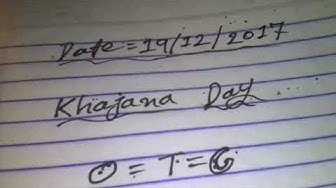 Date = 19/12/2017
Khajana Day ....
O = T = 6